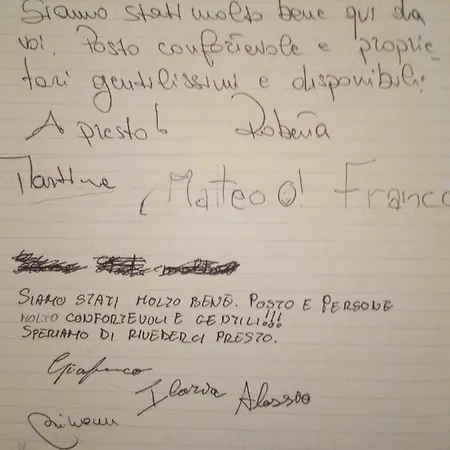 Siamo stati molto bene qui da
voi. Posto confortevole e proprie-
tari gentilissimi e disponibili!
A presto! Roberta
Martina, Matteo! Franco
SIAMO STATI MOLTO BENE. POSTO E PERSONE
MOLTO CONFORTEVOLI E GENTILI!!!
SPERIAMO DI RIVEDERCI PRESTO.
Ilaria Alessio